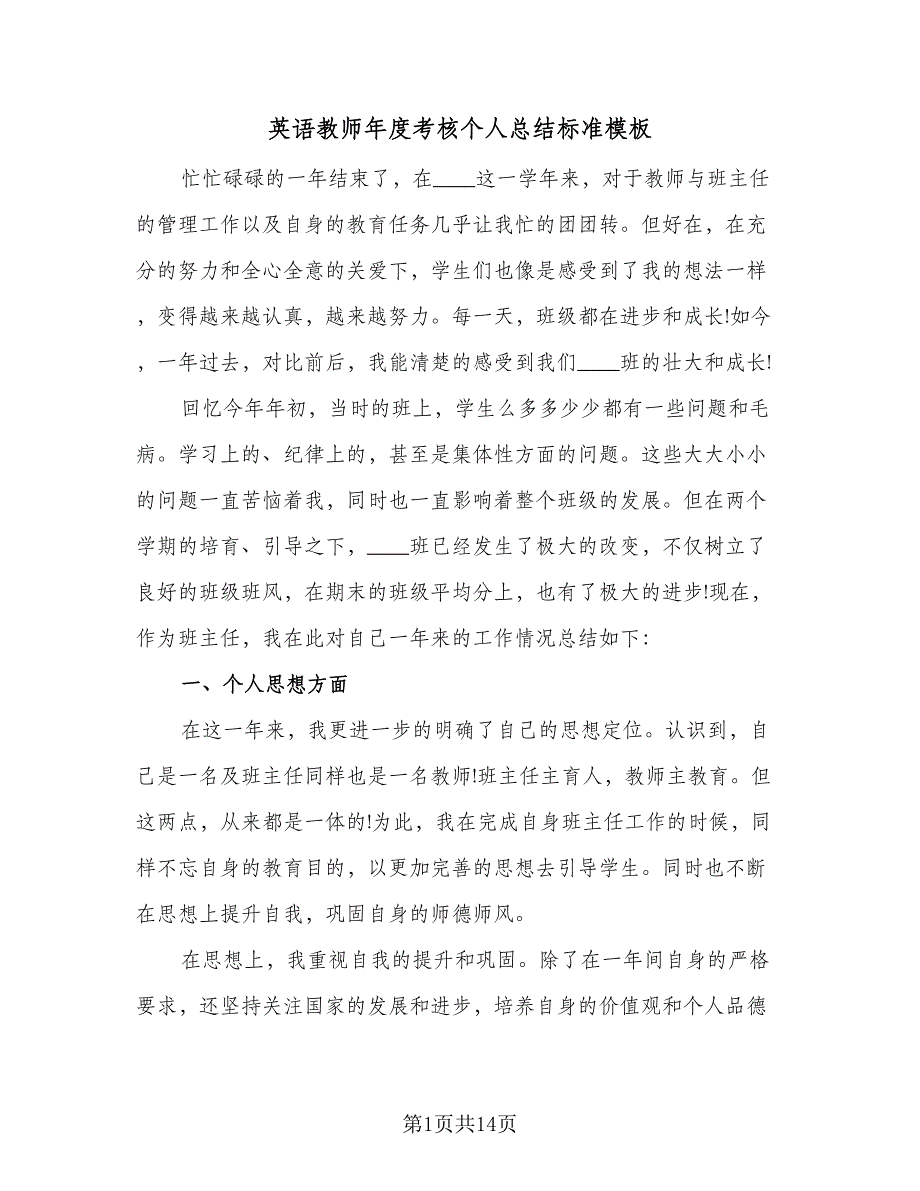 英语教师年度考核个人总结标准模板
忙忙碌碌的一年结束了，在____这一学年来，对于教师与班主任
的管理工作以及自身的教育任务几乎让我忙的团团转。但好在，在充
分的努力和全心全意的关爱下，学生们也像是感受到了我的想法一样
，变得越来越认真，越来越努力。每一天，班级都在进步和成长!如今
，一年过去，对比前后，我能清楚的感受到我们____班的壮大和成长!
回忆今年年初，当时的班上，学生么多多少少都有一些问题和毛
病。学习上的、纪律上的，甚至是集体性方面的问题。这些大大小小
的问题一直苦恼着我，同时也一直影响着整个班级的发展。但在两个
学期的培育、引导之下，____班已经发生了极大的改变，不仅树立了
良好的班级班风，在期末的班级平均分上，也有了极大的进步!现在，
作为班主任，我在此对自己一年来的工作情况总结如下：
一、个人思想方面
在这一年来，我更进一步的明确了自己的思想定位。认识到，自
己是一名及班主任同样也是一名教师!班主任主育人，教师主教育。但
这两点，从来都是一体的!为此，我在完成自身班主任工作的时候，同
样不忘自身的教育目的，以更加完善的思想去引导学生。同时也不断
在思想上提升自我，巩固自身的师德师风。
在思想上，我重视自我的提升和巩固。除了在一年间自身的严格
要求，还坚持关注国家的发展和进步，培养自身的价值观和个人品德
第1页共14页